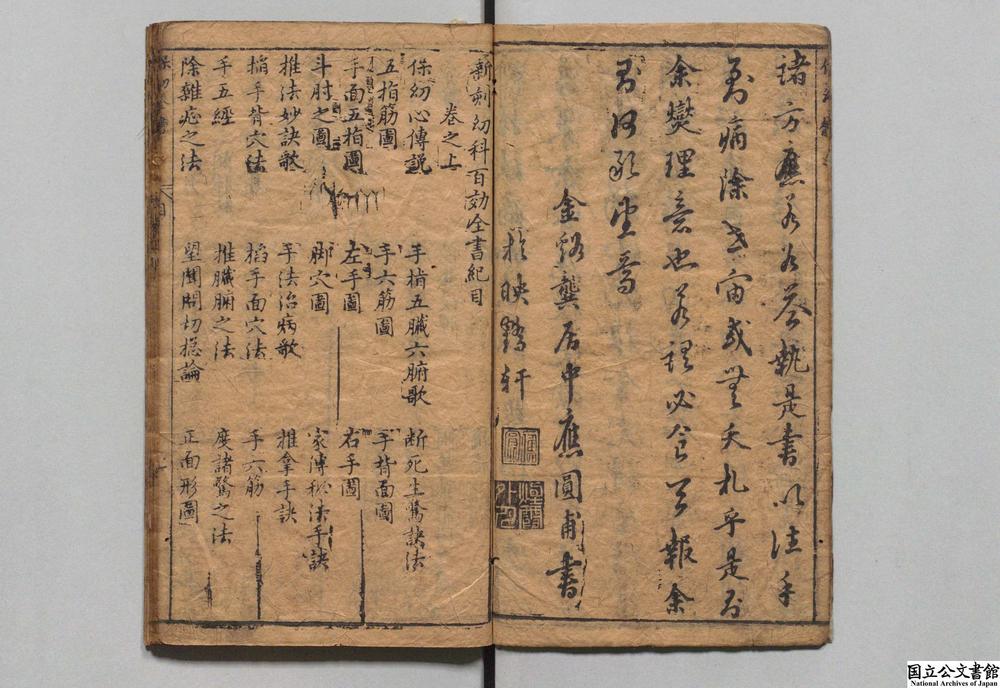 諸方應若答執是書以注手
到病除世宙或無夭札乎是
余燮理意也若謂必令報余
金谿龔居中應圓甫書
於映鐫軒
新刻幼科百効全書紀目
卷之上
保幼心傳説 手指五臟六腑歌 断死生驚訣法
五指筋圖 手六筋圖 手背面圖
手面五指圖 左手圖 右手圖
斗肘之圖 脚穴圖 家傳秘法手訣
推法妙訣歌 手法治病歌 推拿手訣
掐手背穴法 掐手面穴法 手六筋
手五經 推臟腑之法 度諸驚之法
除雜症之法 望聞問切揔論 正面形圖
国立公文書館
National Archives of Japan